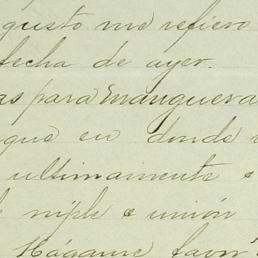 gusto me refiero
fecha de ayer.
para manguera
que en donde
ultimamente
niple e unión
Hágame favor